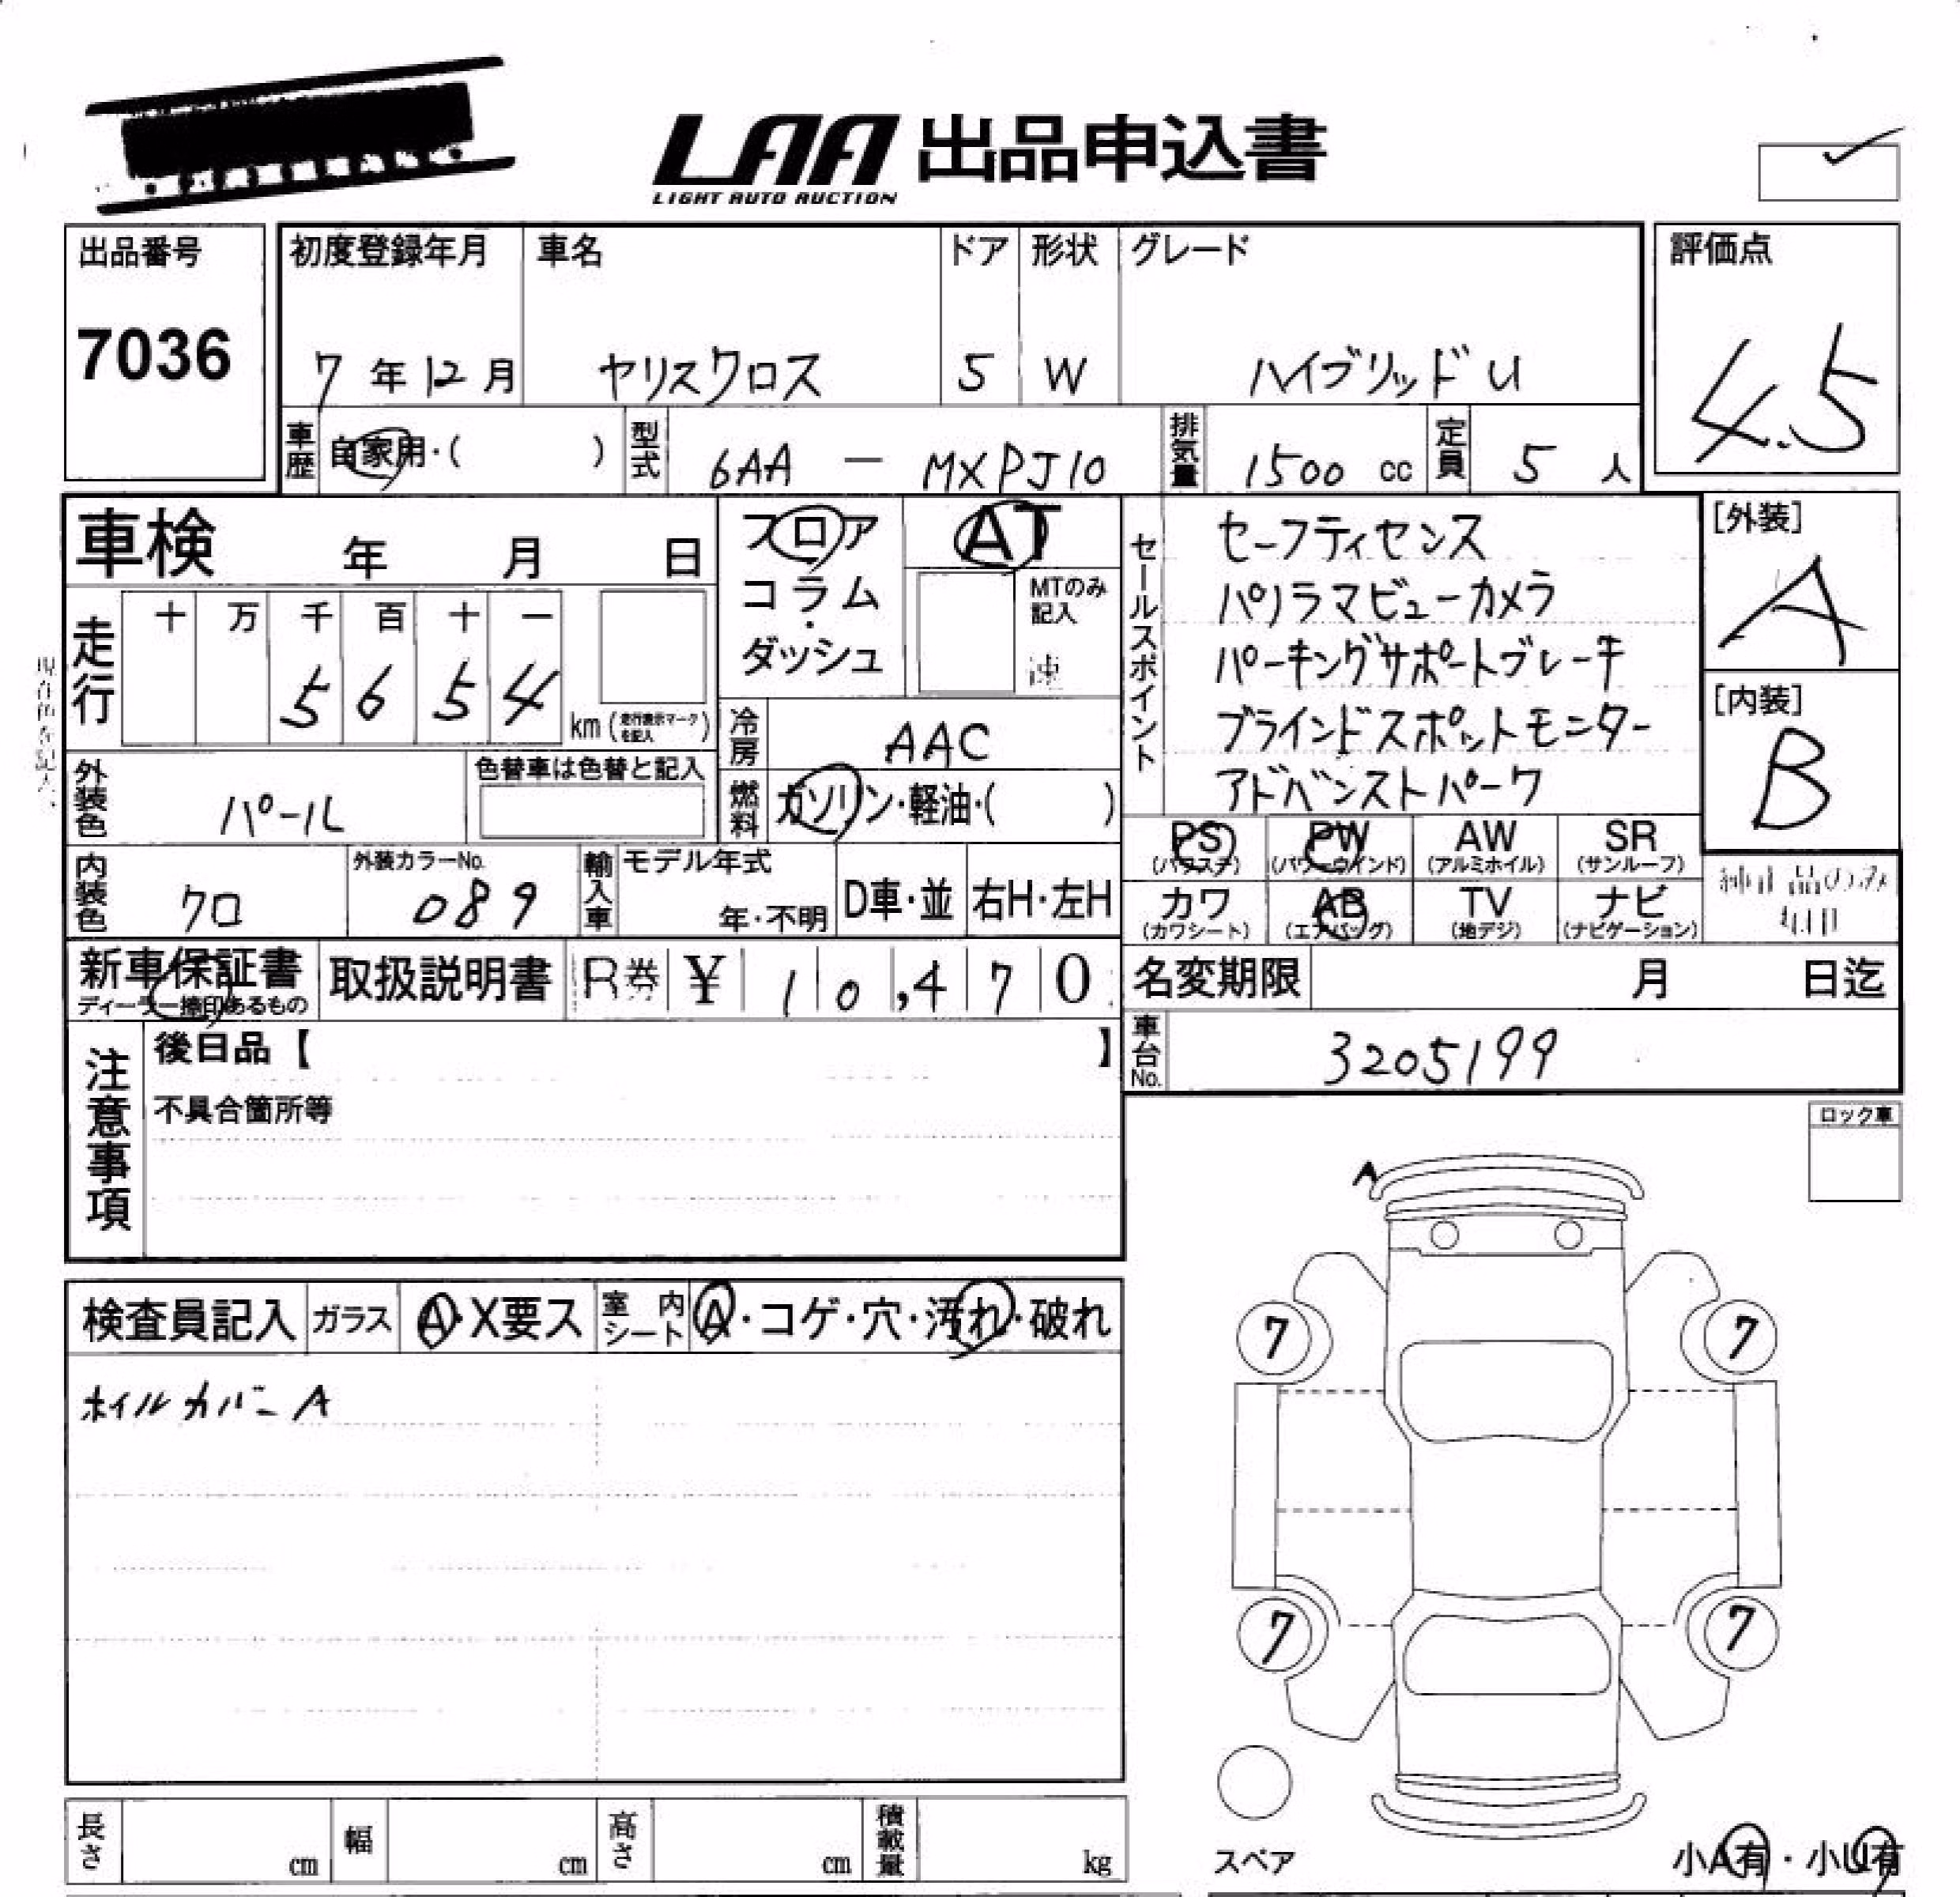 LAA 出品申込書
LIGHT AUTO AUCTION
出品番号
7036
初度登録年月
7年12月
車名
ヤリスクロス
ドア
5
形状
W
グレード
ハイブリッドU
評価点
4.5
車歴
自家用・( )
型式
6AA - MXPJ10
排気量
1500 cc
定員
5 人
車検 年 月 日
フロア
コラム・
ダッシュ
AT
MTのみ
記入
速
走行
十 万 千 百 十 一
5 6 5 4
km (走行表示マークを記入)
冷房
AAC
燃料
ガソリン・軽油・( )
セールスポイント
セーフティセンス
パノラマビューカメラ
パーキングサポートブレーキ
ブラインドスポットモニター
アドバンストパーク
[外装]
A
[内装]
B
外装色
パール
色替車は色替と記入
内装色
クロ
外装カラーNo.
089
輸入車
モデル年式
年・不明
D車・並
右H・左H
PS
(パワステ)
PW
(パワーウインド)
AW
(アルミホイル)
SR
(サンルーフ)
カワ
(カワシート)
AB
(エアバッグ)
TV
(地デジ)
ナビ
(ナビゲーション)
新車保証書
ディーラー捺印あるもの
取扱説明書
R券 ¥ 10,470
名変期限 月 日迄
車台No.
3205199
注意事項
後日品【 】
不具合箇所等
ロック車
A
検査員記入
ガラス
A・X要ス
室内シート
A・コゲ・穴・汚れ・破れ
ホイルカバーA
7 7
7 7
スペア
小A有・小U有
長さ cm
幅 cm
高さ cm
積載量 kg